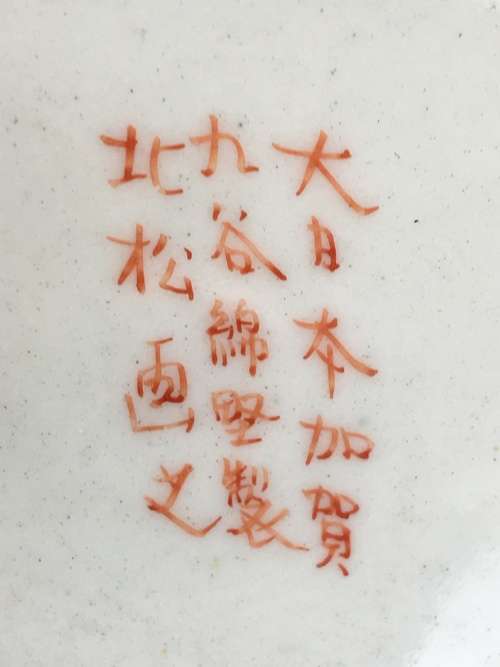 大日本加賀
九谷綿堅製
北松画之